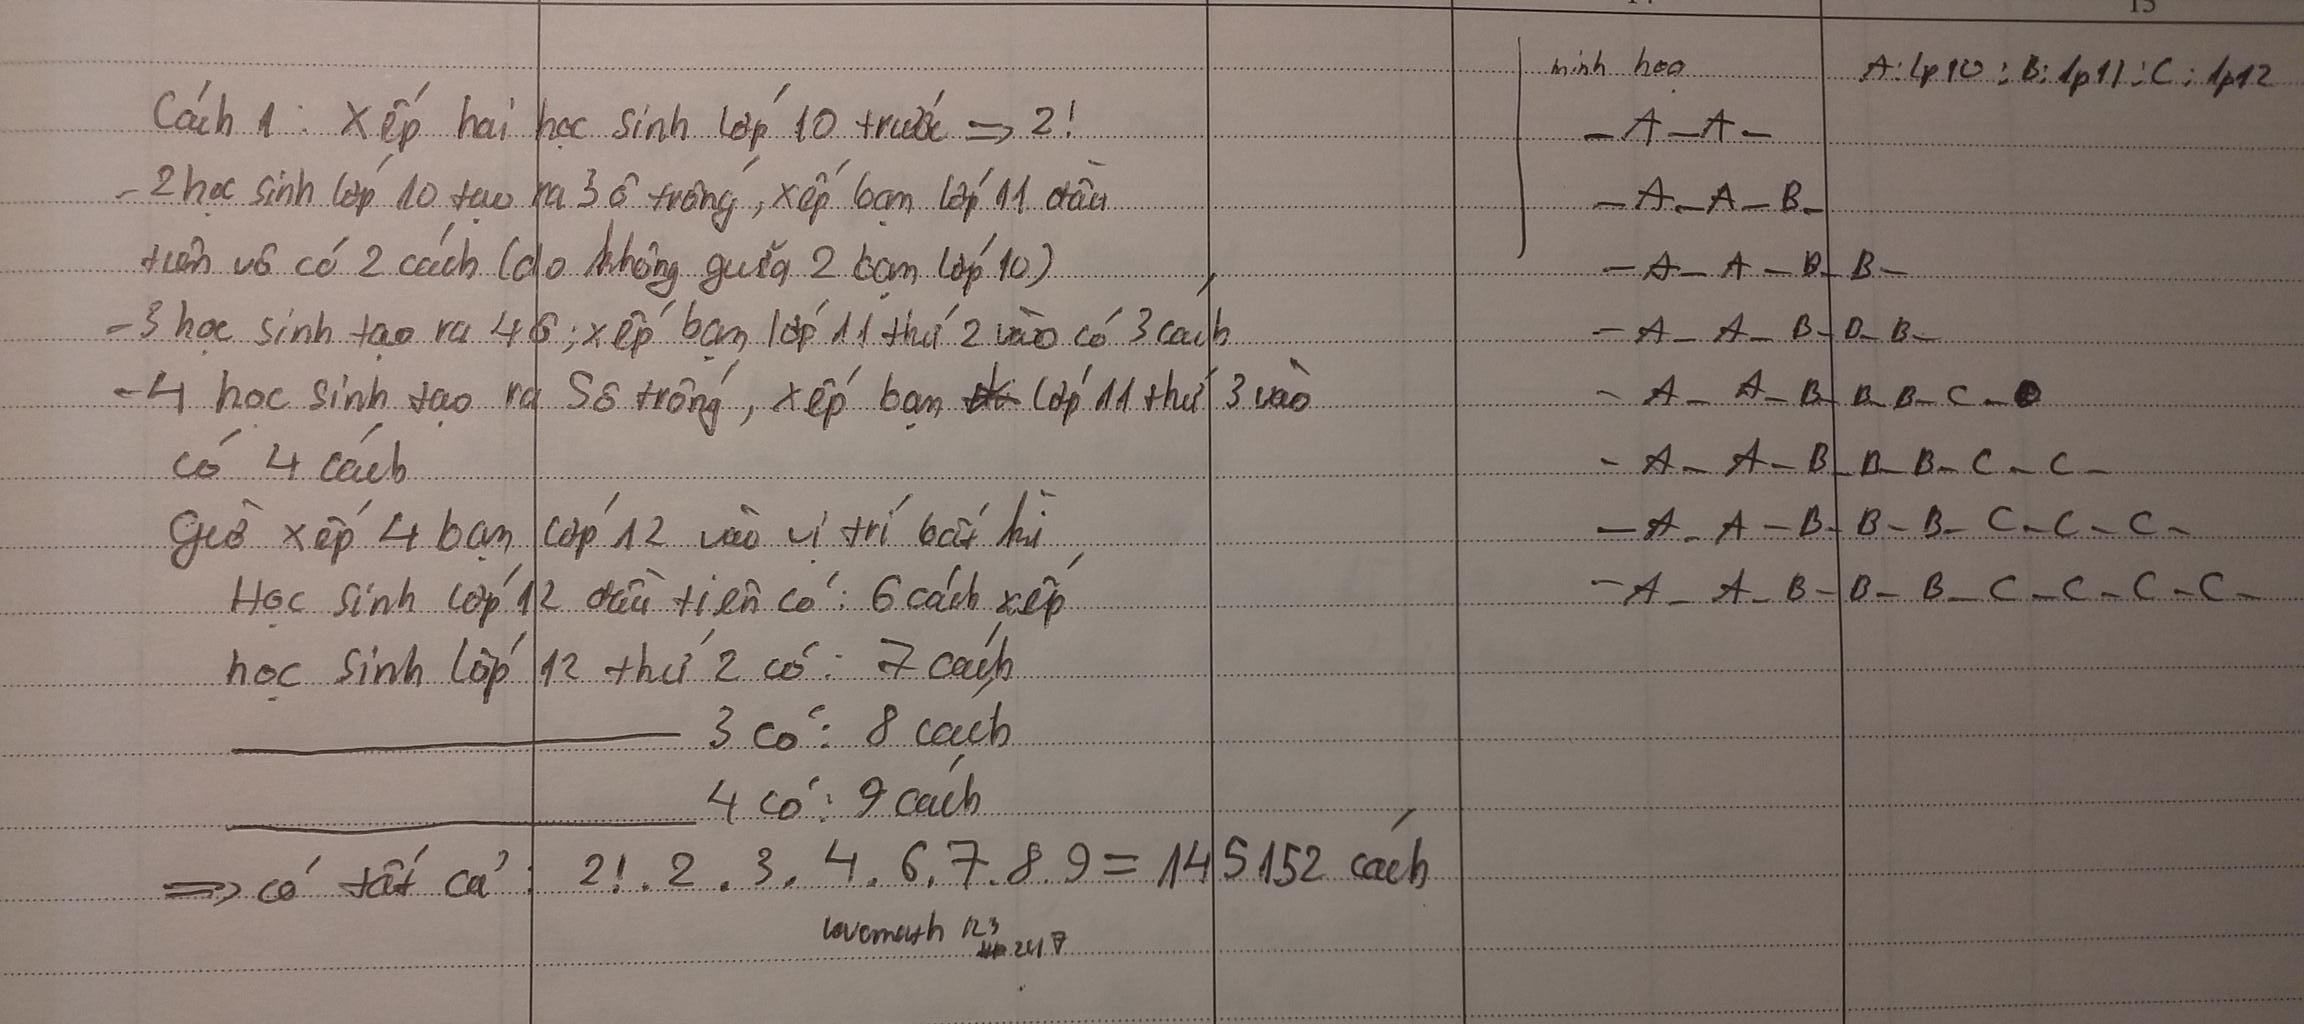 Cách 1: Xếp hai học sinh lớp 10 trước => 2!
- 2 học sinh lớp 10 tạo ra 3 ô trống, xếp bạn lớp 11 đầu
tiên vô có 2 cách (do không giữa 2 bạn lớp 10)
- 3 học sinh tạo ra 4 ô; xếp bạn lớp 11 thứ 2 vào có 3 cách
- 4 học sinh tạo ra 5 ô trống, xếp bạn lớp 11 thứ 3 vào
có 4 cách
Giờ xếp 4 bạn lớp 12 vào vị trí bất kì
Học sinh lớp 12 đầu tiên có: 6 cách xếp
học sinh lớp 12 thứ 2 có: 7 cách
3 có: 8 cách
4 có: 9 cách
=> có tất cả: 2!.2.3.4.6.7.8.9 = 145152 cách
lovemath 123
2417
minh hoạ A: lp10; B: lp11; C: lp12
- A - A -
- A - A - B -
- A - A - B - B -
- A - A - B - B - B -
- A - A - B - B - B - C -
- A - A - B - B - B - C - C -
- A - A - B - B - B - C - C - C -
- A - A - B - B - B - C - C - C - C -
15